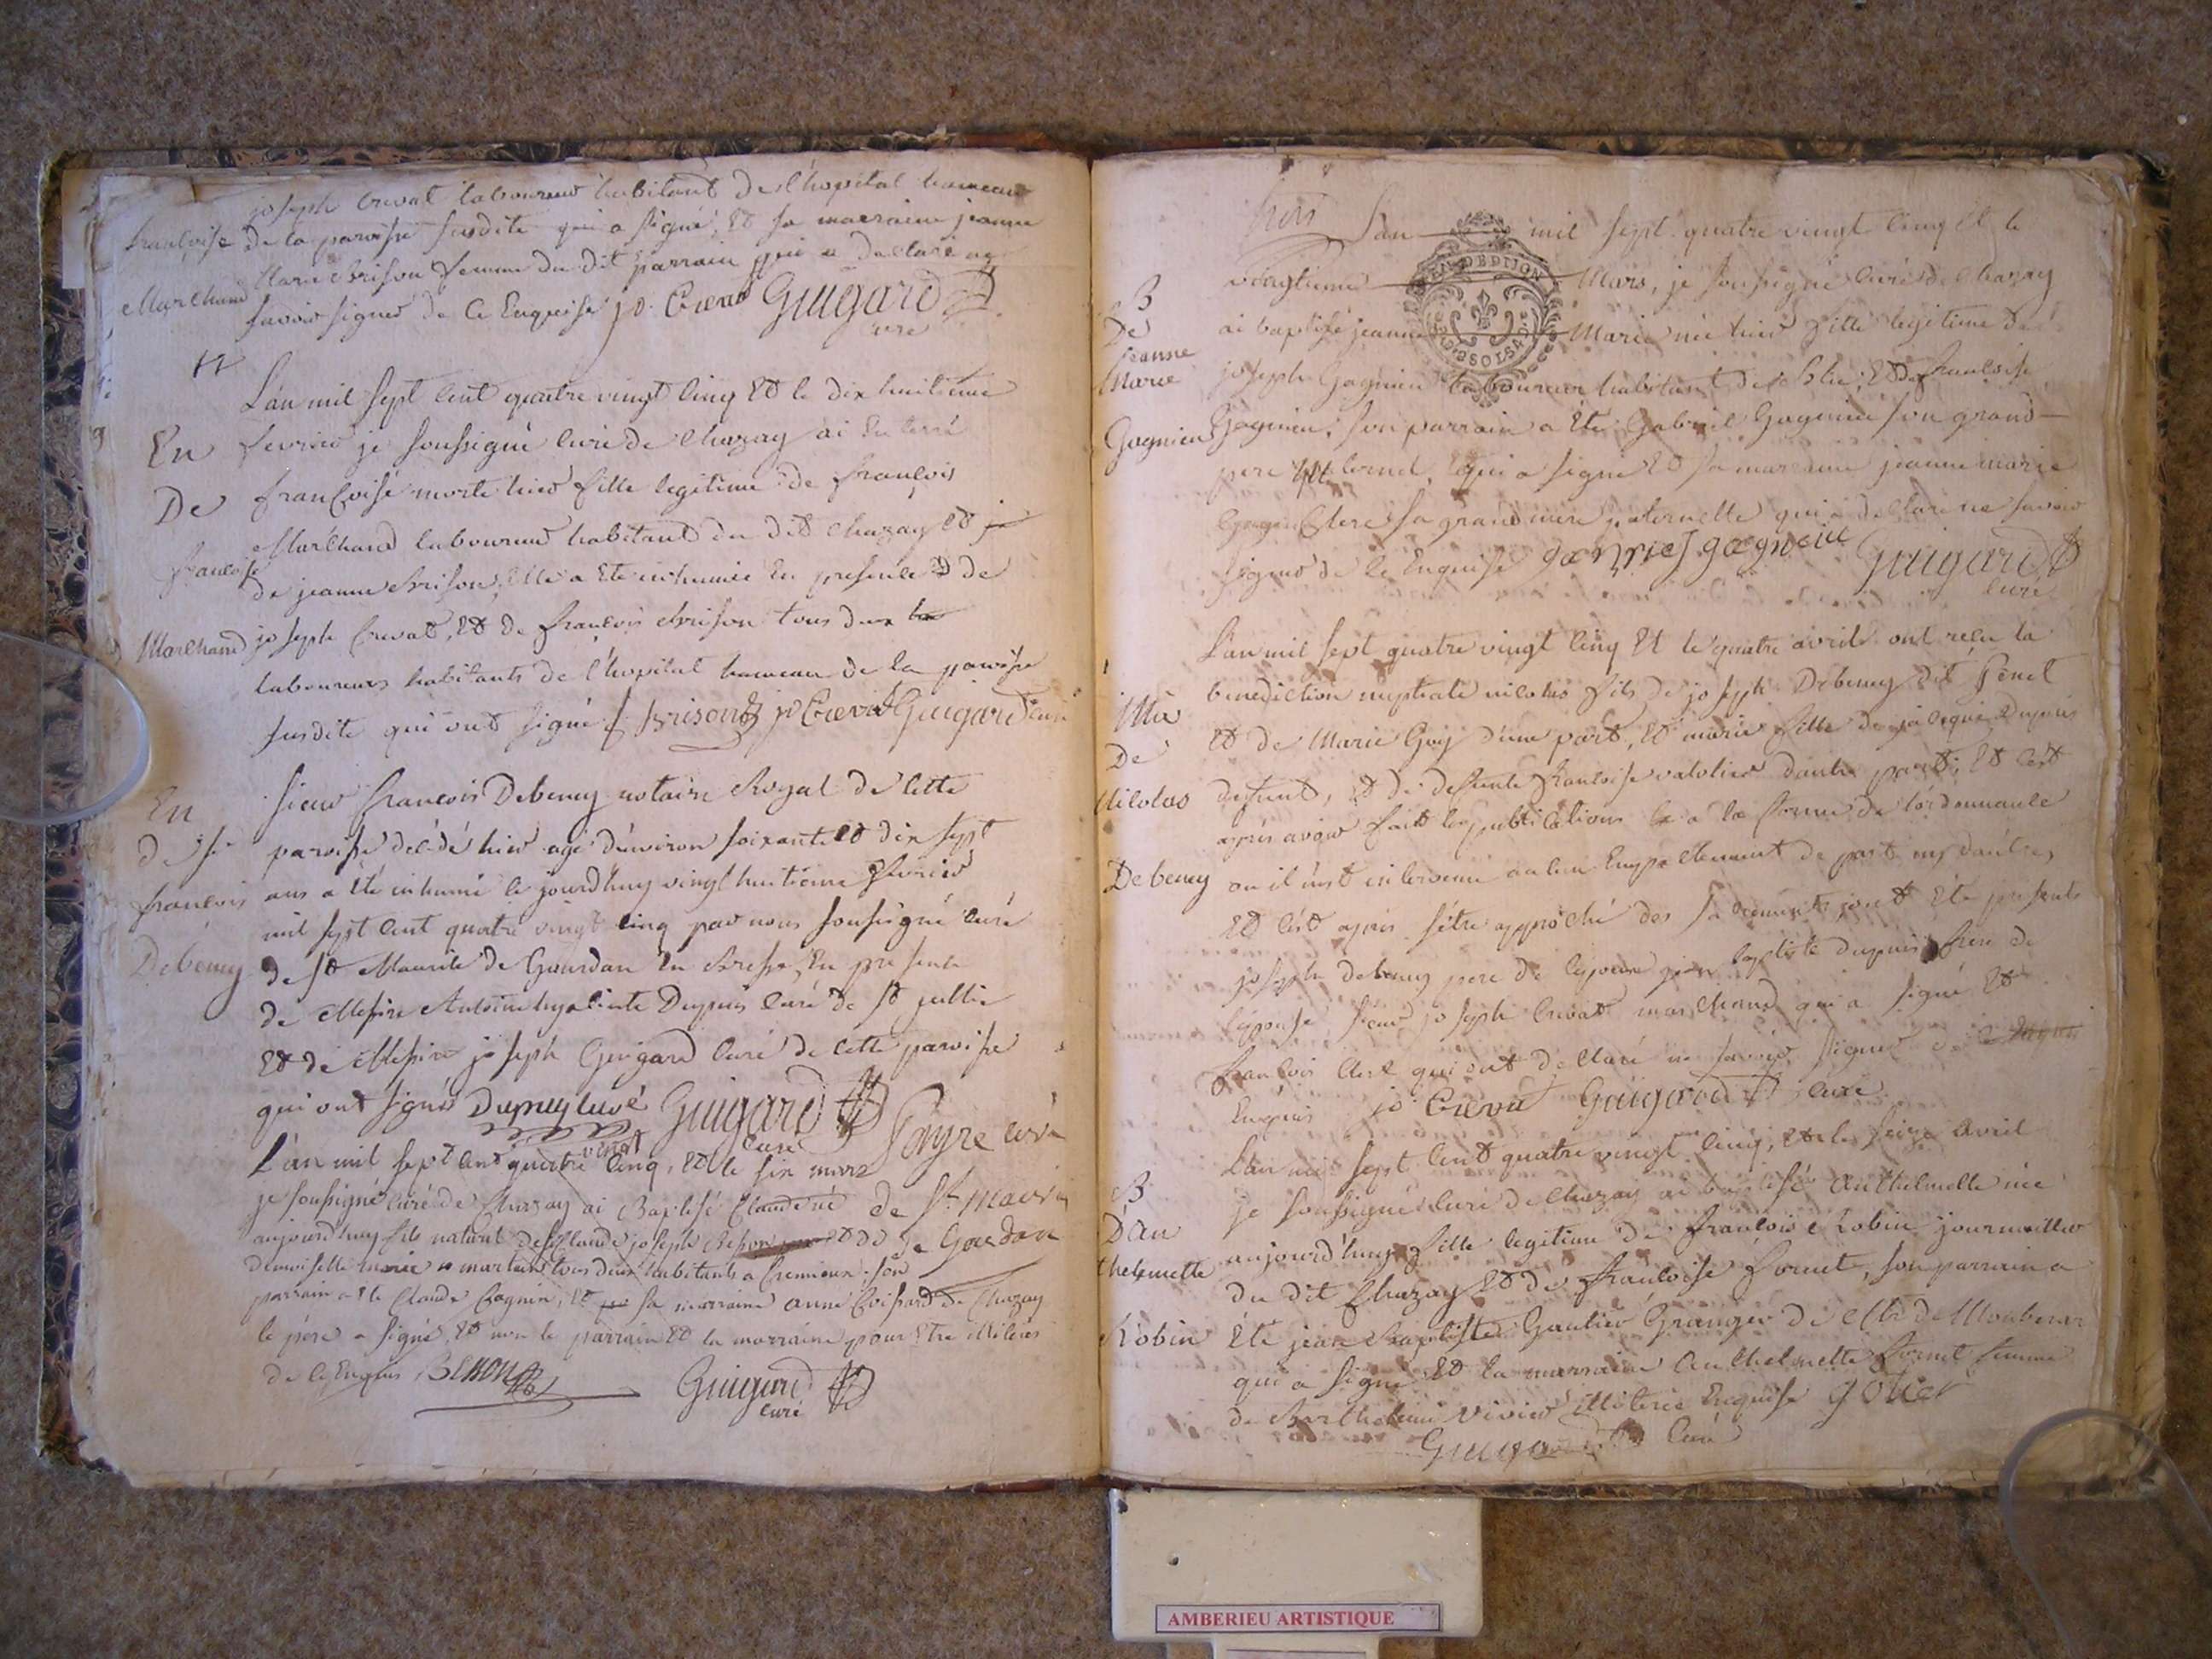 joseph Crevat laboureur habitant de l'hopital hameau
françoise de la paroisse susdite qui a signé, Et sa marraine jeanne
Marie Brison femme du dit parrain qui a declaré ne
Marchand savoir signer de ce Enquise jo Crevat Guigard
curé
L'an mil sept cent quatre vingt cinq Et le dix huitieme
En fevrier je soussigné curé de Chazay ai Enterré
De françoise morte hier fille legitime de françois
Marchand laboureur habitant du dit Chazay Et
françoise de jeanne Brison, Elle a Eté inhumée En presence de
Marchand joseph Crevat, Et de françois Brison tous deux
laboureurs habitants de l'hopital hameau de la paroisse
susdite qui ont signé f Brison jo Crevat Guigard curé
En sieur françois Debeney notaire Royal de cette
de sr paroisse décédé hier agé d'environ soixante Et dix sept
françois ans a été inhumé le jourd'huy vingt huitieme fevrier
mil sept cent quatre vingt cinq par nous soussigné curé
Debeney de St Maurice de Gourdan En Bresse, En presence
de Messire Antoine hyacinte Dupuis curé de St jullie
Et de Messire joseph Guigard curé de cette paroisse
qui ont signés Dupuy curé Guigard
curé Fayre curé
de St Mauri
de Gourdan
L'an mil sept cent quatre vingt cinq, Et le six mars
je soussigné curé de Chazay ai Baptisé Claude né
aujourd'huy fils natural de Claude joseph Et de
demoiselle marie martin tous deux habitants a Cremieux; son
parrain a Eté Claude Cognin, Et sa marraine anne Coissard de Chazay
le père a signé, Et non le parrain Et la marraine pour Etre illiterés
de ce Enquis,
Guigard
curé
trois L'an mil sept quatre vingt cinq Et le
vingtieme Mars, je soussigné curé de Chazay
GEN. DE DIJON
2 SOLS
B
De ai baptisé jeanne Marie née hier fille legitime de
jeanne
Marie joseph Gagnieu laboureur habitant de Et de françoise
Gagnieu Gagnieu; son parrain a Eté Gabriel Gagnieu son grand
pere qui a signé Et sa marraine jeanne marie
Clere sa grand mere paternelle qui a declaré ne savoir
signer de ce Enquise gabriel gagnieu Guigard
curé
L'an mil sept quatre vingt cinq Et le quatre avril ont reçu la
Ma benediction nuptiale nicolas fils de joseph Debeney dit Penet
De Et de Marie Guy d'une part, Et marie fille de jacque Dupuis
Nicolas defunt, Et de defunte françoise d'autre part; Et c'est
après avoir fait les publications a la forme de l'ordonnance
Debeney ou il n'est intervenu aucun Empechement de part ny d'autre,
Et c'est après s'être approché des sacrements, ont Eté presents
joseph debeney pere de l'epoux jean baptiste dupuis frere de
l'epouse, sieur joseph Crevat marchand qui a signé Et
françois Clert qui ont declaré ne savoir signer de ce
Enquis jo Crevat Guigard curé
L'an mil sept cent quatre vingt cinq, Et le seize avril
B je soussigné curé de Chazay ai baptisé Anthelmette née
D'an aujourd'huy fille legitime de françois Robin journaillier
thelmette du dit Chazay Et de françoise fornet, son parrain a
Robin Eté jean Baptiste Gautier Granger de Mr de
qui a signé Et la marraine Anthelmette fornet femme
de Barthelemi Vivier illiterée Enquise gotier
Guigard curé
AMBERIEU ARTISTIQUE